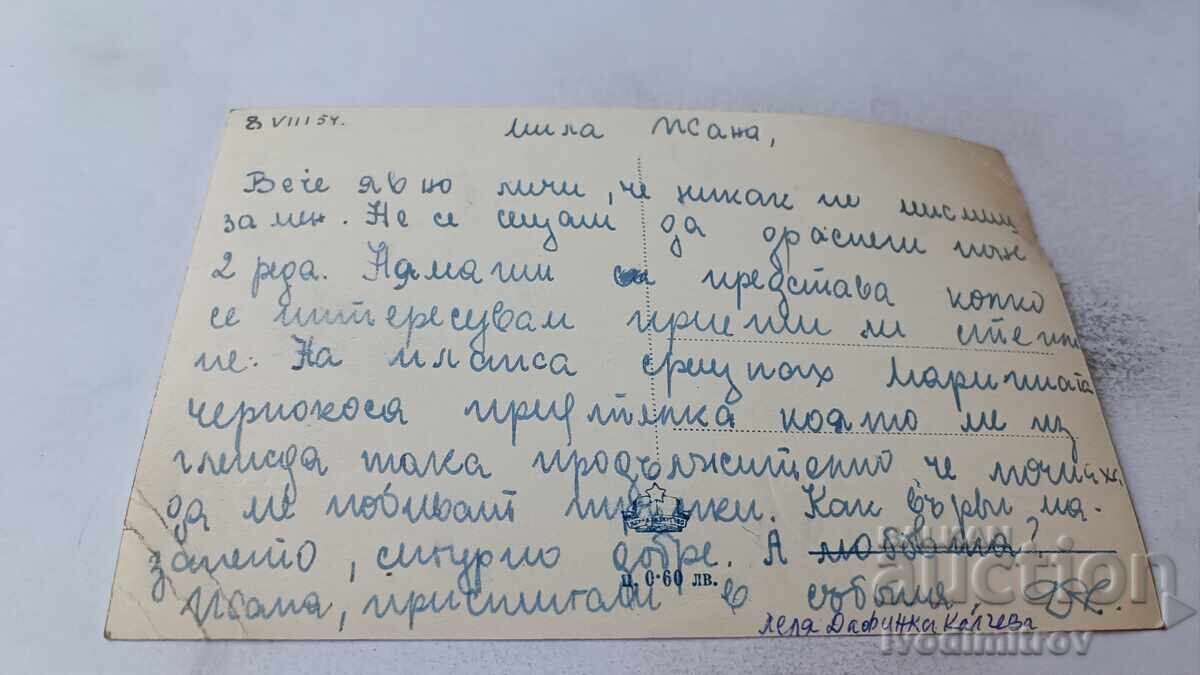 8 VIII 54.
Мила Жана,
Вече явно личи, че никак не мислиш
за мен. Не се сещаш да драснеш поне
2 реда. Нямаш си представа колко
се интересувам приели ли
не. На плажа срещнах Маришката
чернокоса приятелка която ме из
гледа така продължително че почнаха
да ме побиват тръпки. Как върви ма-
зането, сигурно добре. А любовта?
Жана, пристигам в събота ДК.
ц. 0·60 лв.
леля Дафинка Калчева
BALKAN
auction
ivodimitrov